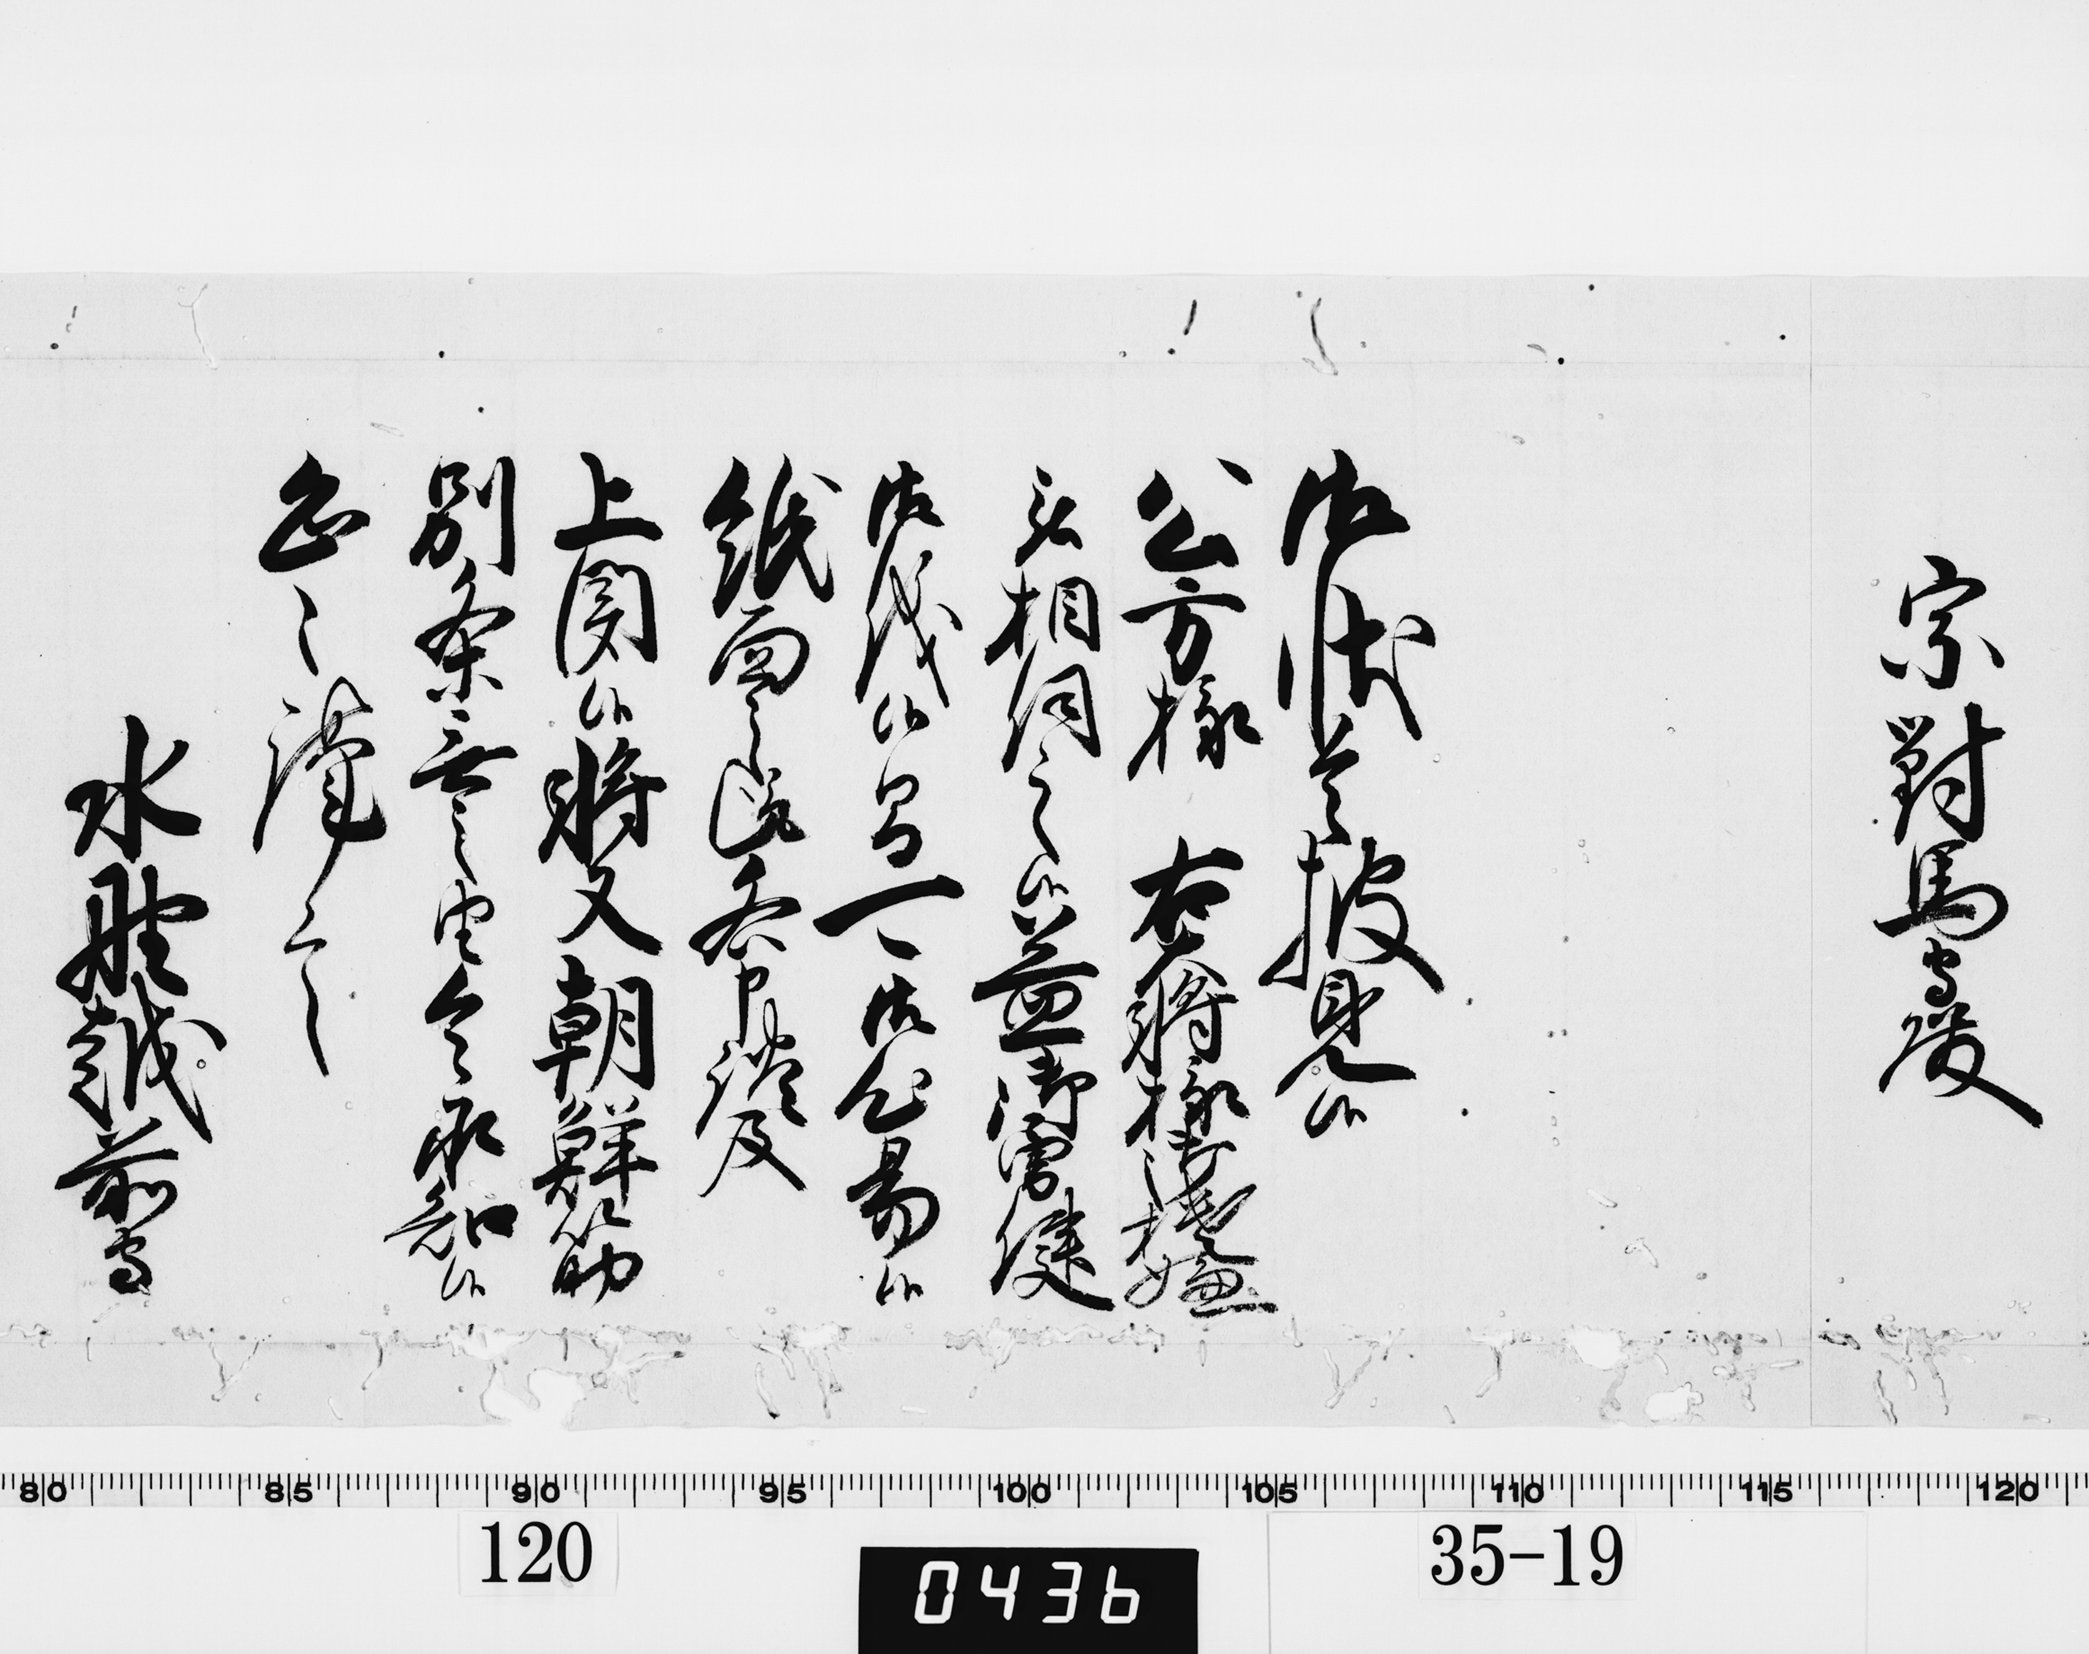 宗對馬守殿
御状令披見候
公方様 右大将様御機嫌
被相伺之候益御勇健
御儀候間可御心易候
紙面之趣各申談及
上聞候将又朝鮮筋
別条無之由令承知候
恐々謹言
水野越前守
80 85 90 95 100 105 110 115 120
120
0436
35-19